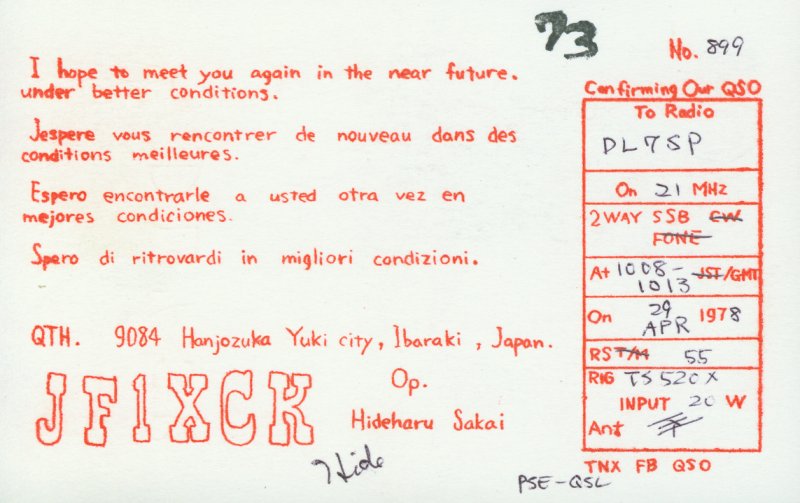 73
No. 899
I hope to meet you again in the near future.
under better conditions.
Jespere vous rencontrer de nouveau dans des
conditions meilleures.
Espero encontrarle a usted otra vez en
mejores condiciones.
Spero di ritrovardi in migliori condizioni.
QTH. 9084 Hanjozuka Yuki city, Ibaraki, Japan.
JF1XCK
Op.
Hideharu Sakai
Hide
Confirming Our QSO
To Radio
DL7SP
On 21 MHz
2WAY SSB CW
FONE
At 1008- JST/GMT
1013
On 29 1978
APR
RST/M 55
RIG TS520X
INPUT 20 W
Ant
TNX FB QSO
PSE-QSL